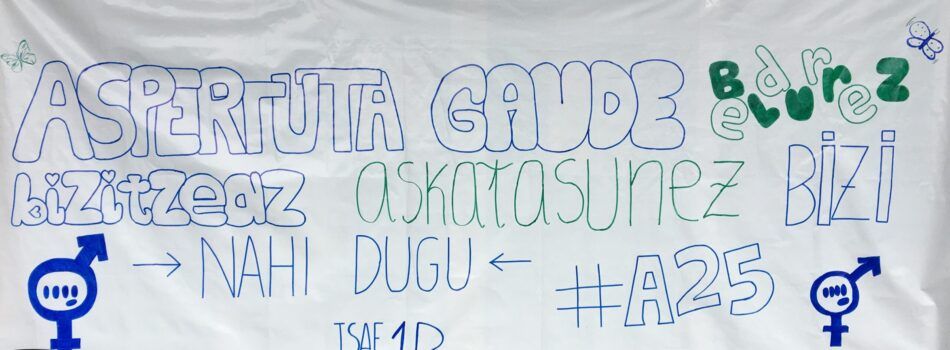 ASPERTUTA GAUDE BeLdUrreZ
biZitZeaZ askatasunez BIZI
→ NAHI DUGU ←
#A25